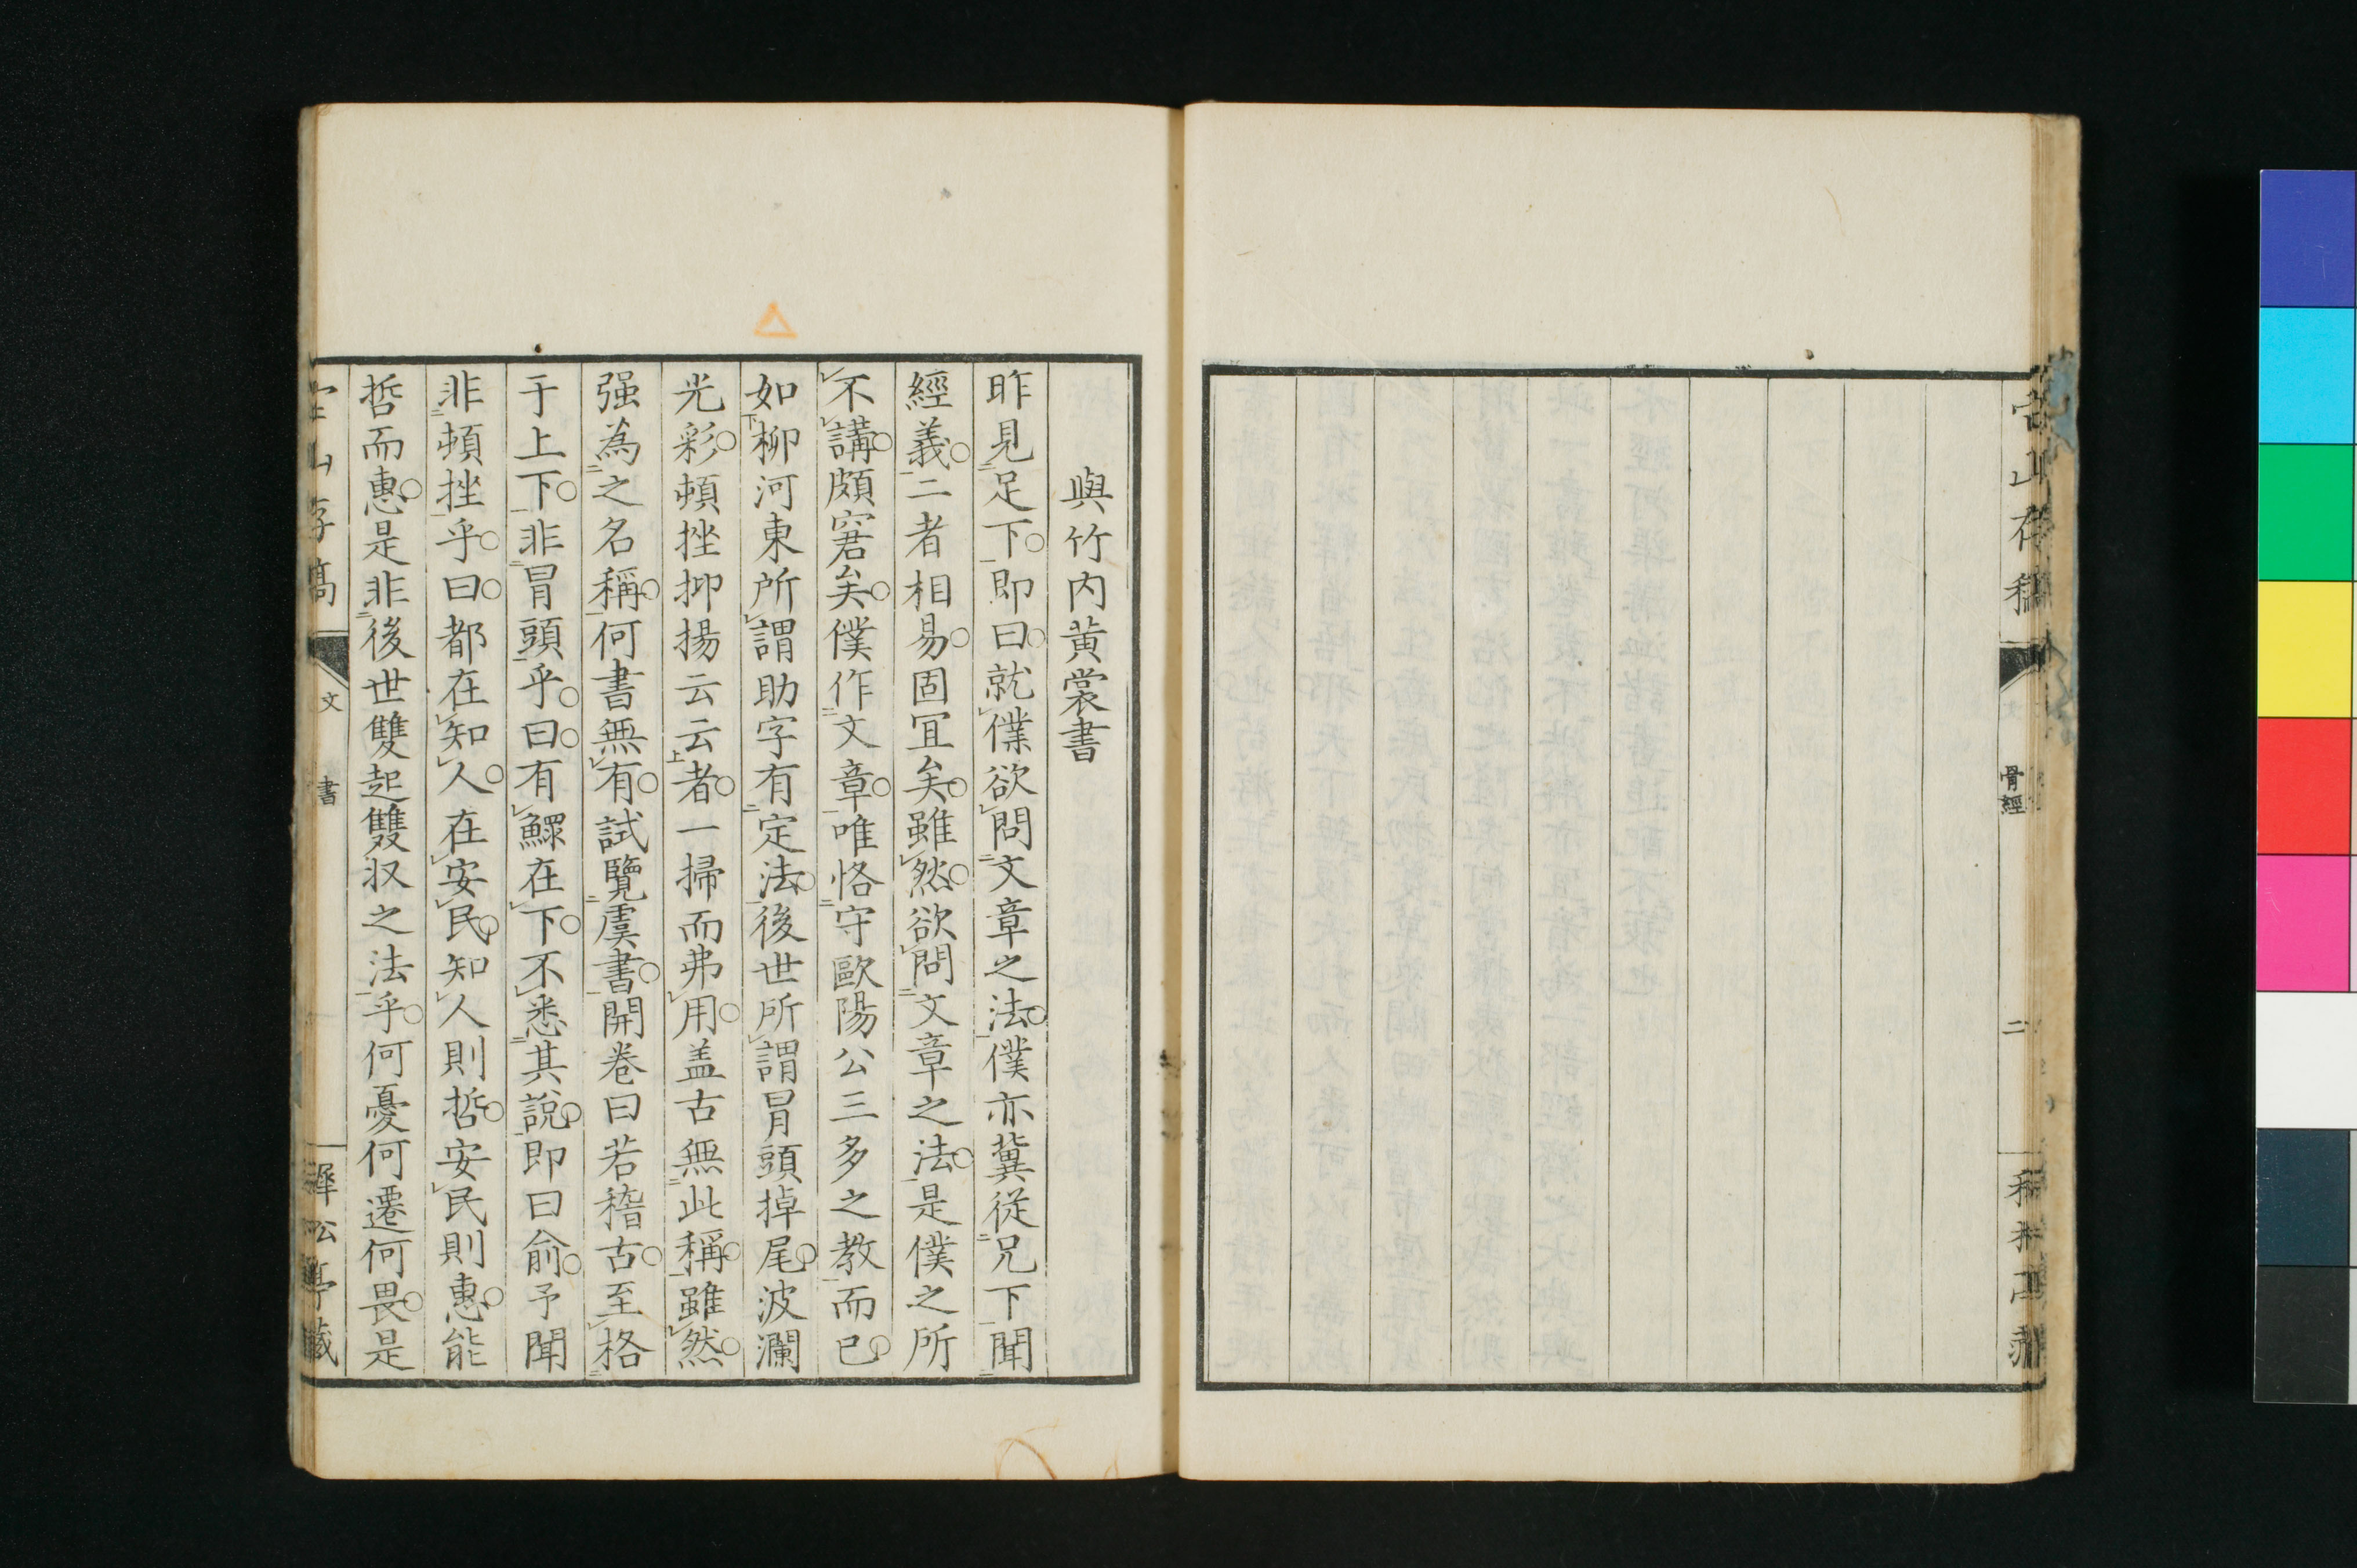 骨經
二
與竹内黄裳書
昨見足下即曰就僕欲問文章之法僕亦冀從兄下聞
經義二者相易固宜矣雖然欲問文章之法是僕之所
不講頗窘矣僕作文章唯恪守歐陽公三多之教而已
如柳河東所謂助字有定法後世所謂冐頭掉尾波瀾
光彩頓挫抑揚云云者一掃而弗用盖古無此稱雖然
强為之名稱何書無有試覽虞書開卷曰若稽古至格
于上下非冐頭乎曰有鰥在下不悉其說即曰俞予聞
非頓挫乎曰都在知人在安民知人則哲安民則惠能
哲而惠是非後世雙起雙収之法乎何憂何遷何畏是
文
書